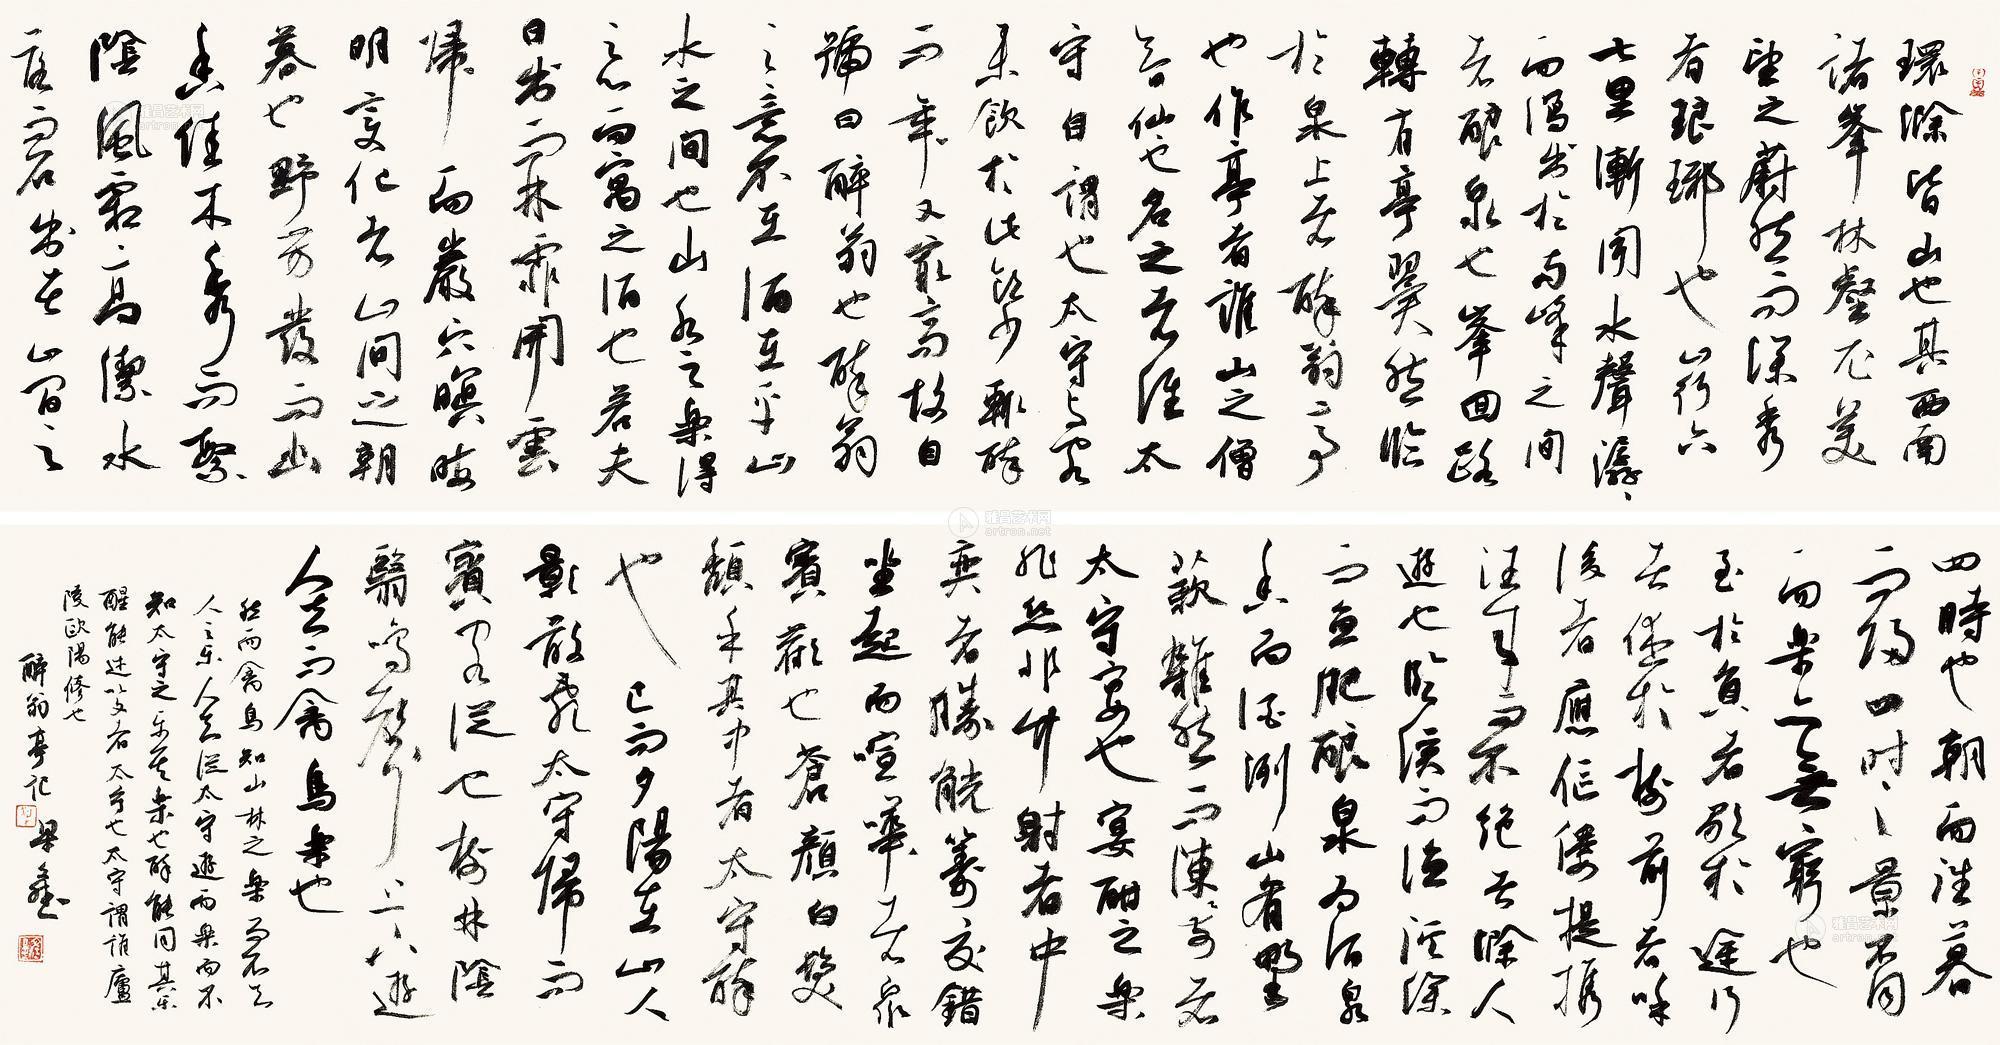 環滁皆山也其西南
諸峯林壑尤美
望之蔚然而深秀
者琅琊也山行六
七里漸聞水聲潺〻
而瀉出於兩峰之間
者釀泉也峯回路
轉有亭翼然臨
於泉上者醉翁亭
也作亭者誰山之僧
智仙也名之者誰太
守自謂也太守与客
来飲於此飲少輒醉
而年又最高故自
號曰醉翁也醉翁
之意不在酒在乎山
水之間也山水之樂得
之心而寓之酒也若夫
日出而林霏開雲
歸而巖穴暝晦
明變化者山間之朝
暮也野芳發而幽
香佳木秀而繁
陰風霜〻高潔水
落而石出者山間之
四時也朝而往暮
而歸四時之景不同
而樂亦無窮也
至於負者歌於途行
者休於樹前者呼
後者應傴僂提攜
往来而不絕者滁人
遊也臨溪而漁溪深
而魚肥釀泉為酒泉
香而酒洌山肴野
蔌雜然而陳前者
太守宴也宴酣之樂
非絲非竹射者中
弈者勝觥籌交錯
坐起而喧嘩者衆
賓歡也蒼顏白髮
頹乎其中者太守醉
也已而夕陽在山人
影散亂太守歸而
賓客從也樹林陰
翳鳴聲上下遊
人去而禽鳥樂也
然而禽鳥知山林之樂而不知
人之樂人知從太守遊而樂而不
知太守之樂其樂也醉能同其樂
醒能述以文者太守也太守謂誰廬
陵歐陽修也
醉翁亭記
雅昌艺术网
artron.net